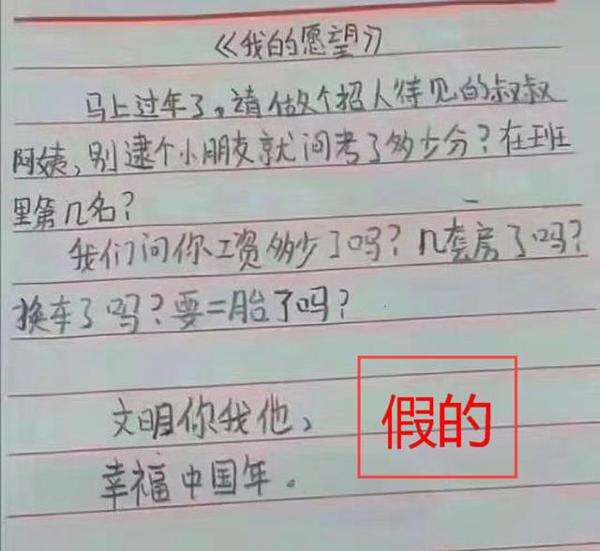 《我的愿望》
马上过年了。请做个招人待见的叔叔
阿姨,别逮个小朋友就问考了多少分?在班
里第几名?
我们问你工资多少了吗?几套房了吗?
换车了吗?要二胎了吗?
文明你我他、
幸福中国年。
假的